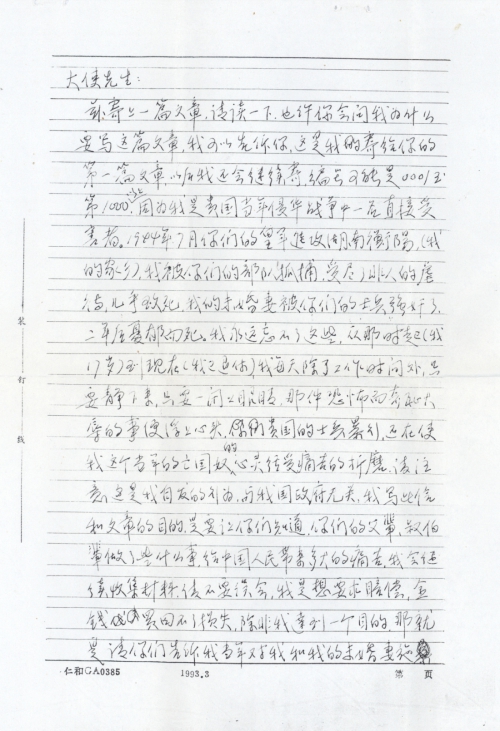 大使先生：
兹寄上一篇文章，请读一下，也许你会问我为什么
要写这篇文章，我可以告诉你，这是我的寄给你的
第一篇文章，以后我还会继续寄，编号可能是0001至
第1000以上，因为我是贵国当年侵华战争中一名直接受
害者。1944年7月你们的皇军进攻湖南衡阳，（我
的家乡），我被你们的部队抓捕，受尽了非人的虐
待，几乎致死，我的未婚妻被你们的士兵强奸了，
二年后忧郁而死。我永远忘不了这些，从那时起（我
17岁）到现在（我已退休）我每天除了工作时间外，只
要静下来，只要一闭上眼睛，那件恐怖而奇耻大
辱的事便浮上心头，你们贵国的士兵暴行，还在使
我这个当年的亡国奴的心灵经受痛苦的折磨，请注
意，这是我自发的行为，与我国政府无关，我写此信
和文章的目的，是要让你们知道，你们的父辈，叔伯
辈做了些什么事，给中国人民带来多大的痛苦，我会继
续收集材料，请不要误会，我是想要求赔偿，金
钱买回不了损失，除非我达到一个目的，那就
是请你们告诉我当年对我和我的未婚妻施
仁和GA0385 1993.3 第 页
装
订
线